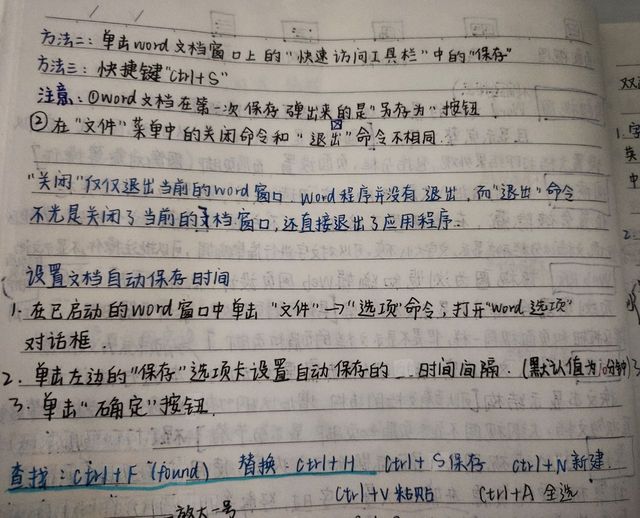 方法二：单击word文档窗口上的"快速访问工具栏"中的"保存"
方法三：快捷键"ctrl+S"
注意：①word文档在第一次保存弹出来的是"另存为"按钮
②在"文件"菜单中的关闭命令和"退出"命令不相同.
"关闭"仅仅退出当前的word窗口.word程序并没有退出，而"退出"命令
不光是关闭了当前的文档窗口，还直接退出了应用程序.
设置文档自动保存时间
1.在已启动的word窗口中单击"文件"→"选项"命令，打开"word选项"
对话框.
2.单击左边的"保存"选项卡设置自动保存的 时间间隔.(默认值为10分钟)
3.单击"确定"按钮.
查找：ctrl+F (found) 替换：ctrl+H ctrl+S保存 ctrl+N新建
ctrl+V粘贴 ctrl+A全选
放大一号